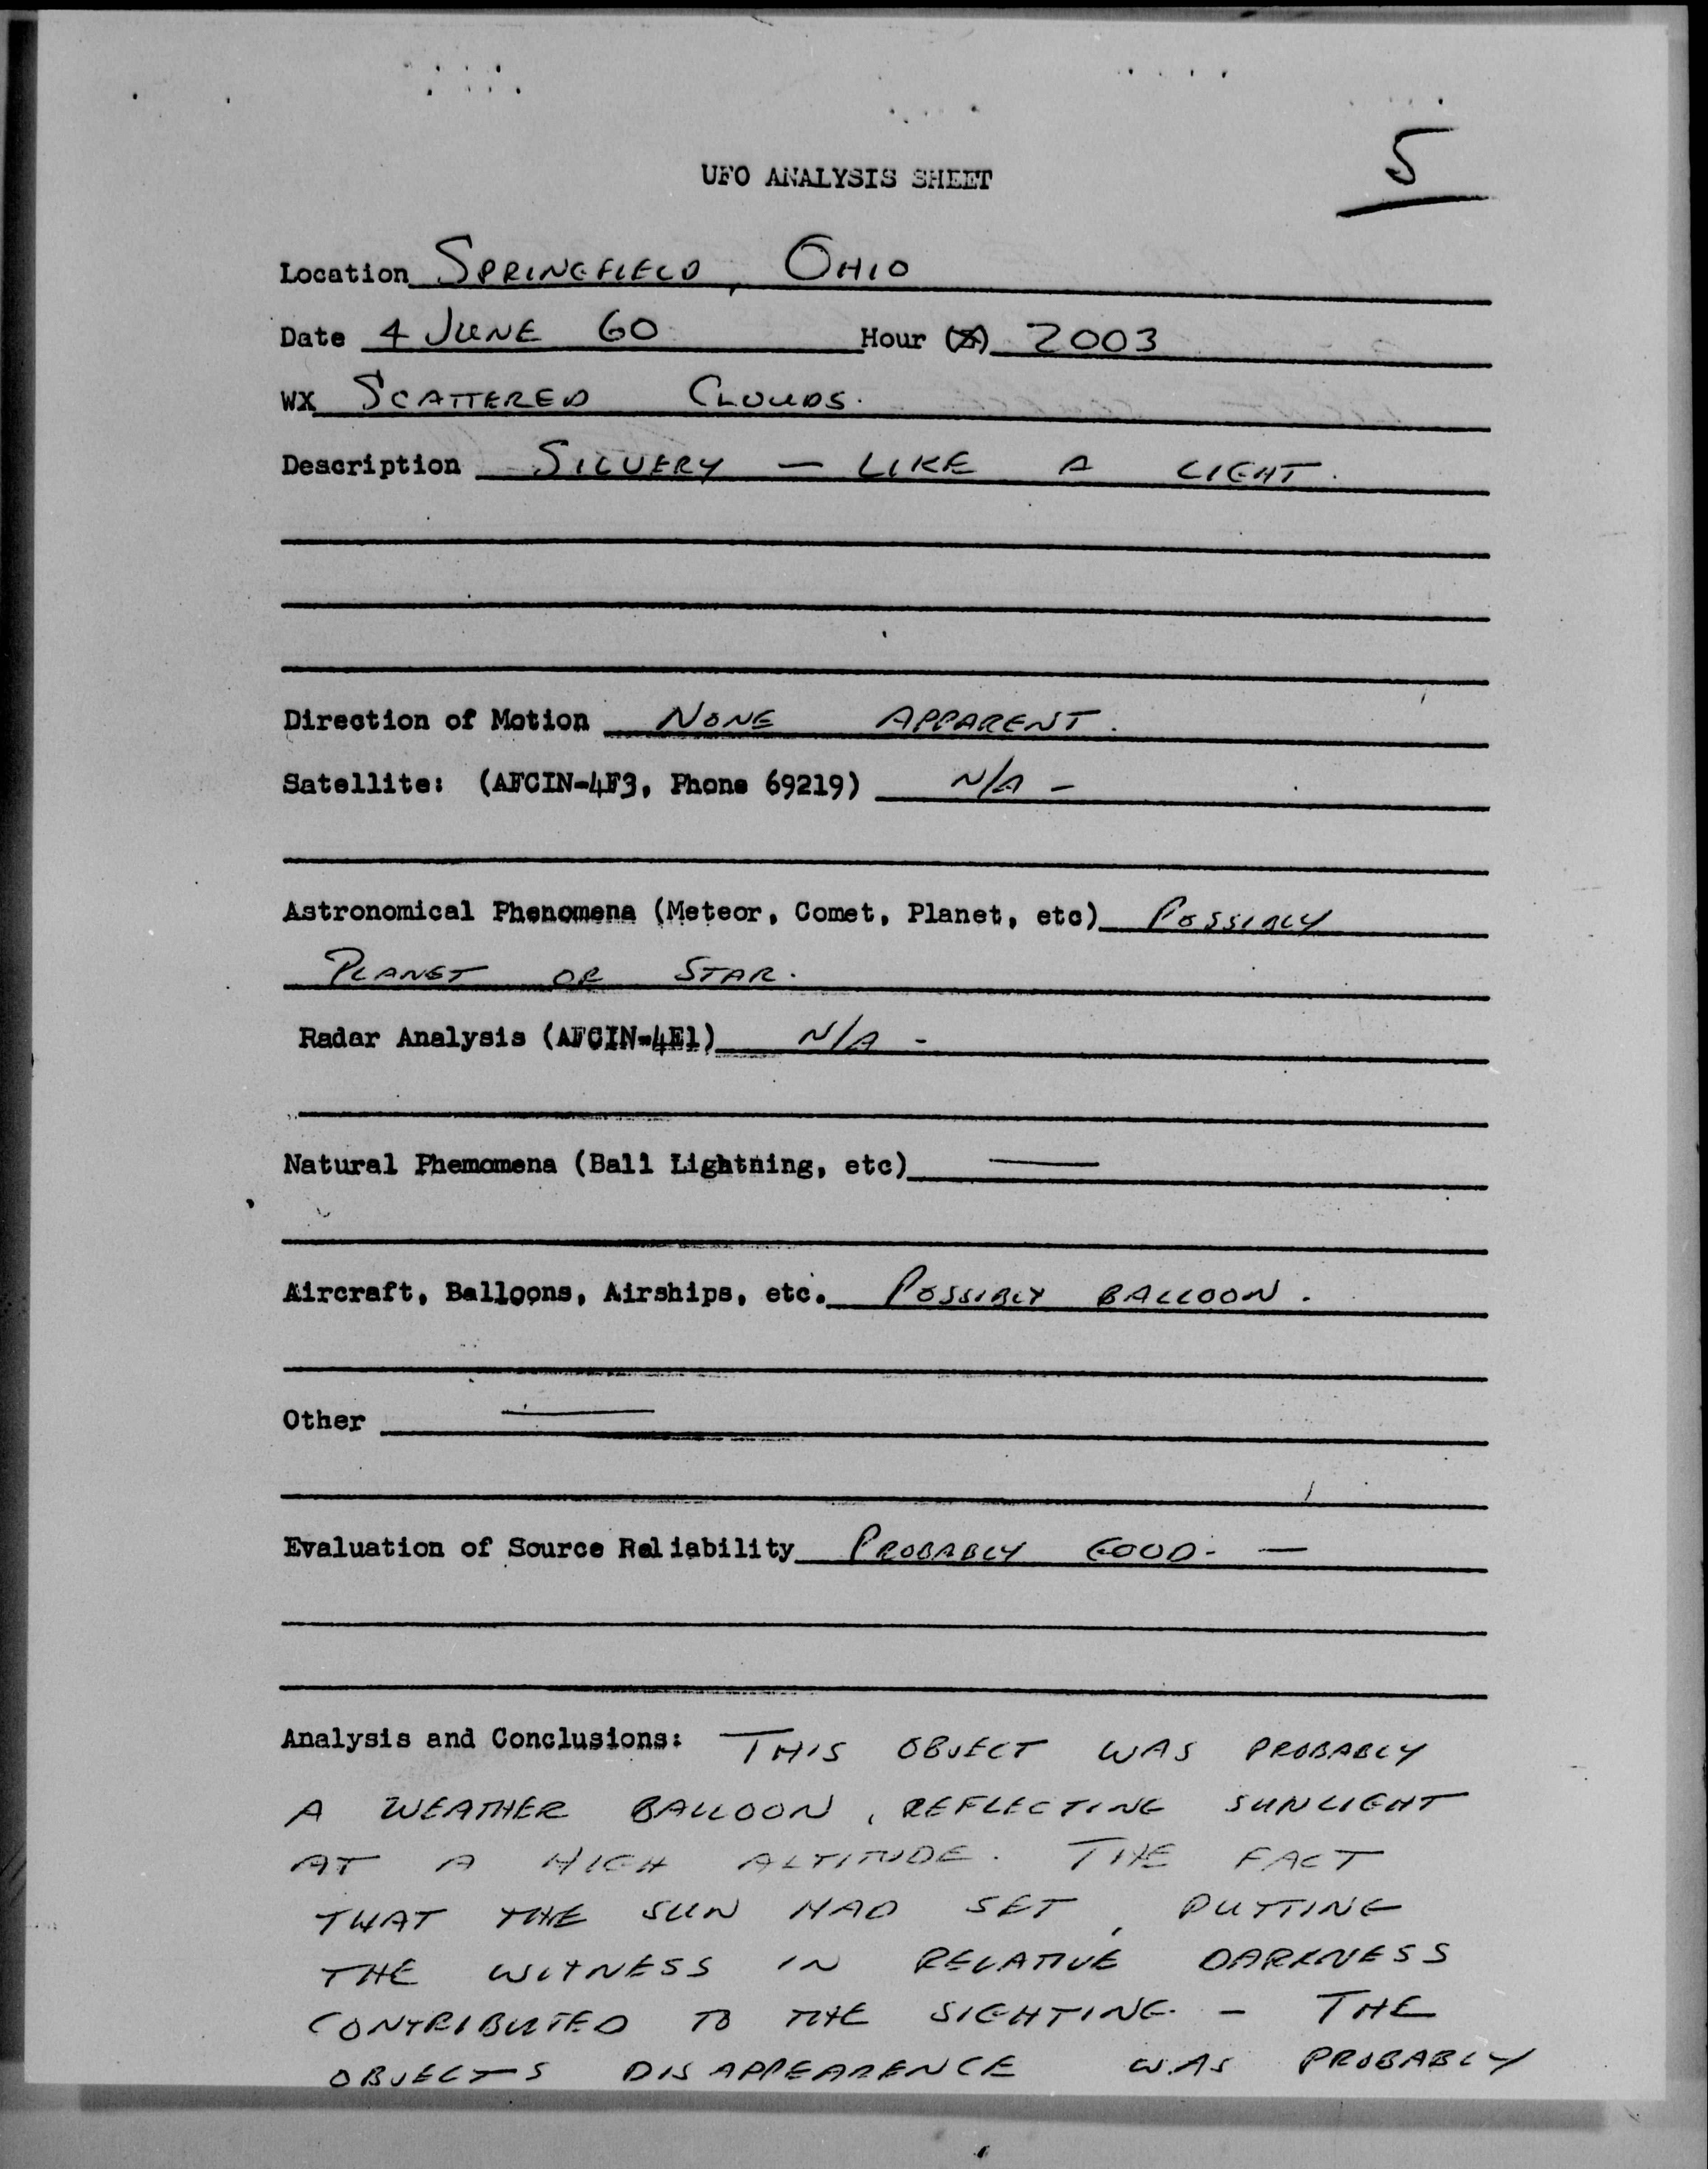 5
UFO ANALYSIS SHEET
Location SPRINGFIELD, OHIO
Date 4 JUNE 60 Hour (Z) 2003
WX SCATTERED CLOUDS.
Description SILVERY — LIKE A LIGHT.
Direction of Motion NONE APPARENT.
Satellite: (AFCIN-4F3, Phone 69219) N/A -
Astronomical Phenomena (Meteor, Comet, Planet, etc) POSSIBLY
PLANET OR STAR.
Radar Analysis (AFCIN-4E1) N/A -
Natural Phemomena (Ball Lightning, etc) —
Aircraft, Balloons, Airships, etc. POSSIBLY BALLOON.
Other —
Evaluation of Source Reliability PROBABLY GOOD. —
Analysis and Conclusions: THIS OBJECT WAS PROBABLY
A WEATHER BALLOON, REFLECTING SUNLIGHT
AT A HIGH ALTITUDE. THE FACT
THAT THE SUN HAD SET, PUTTING
THE WITNESS IN RELATIVE DARKNESS
CONTRIBUTED TO THE SIGHTING. - THE
OBJECTS DISAPPEARENCE WAS PROBABLY